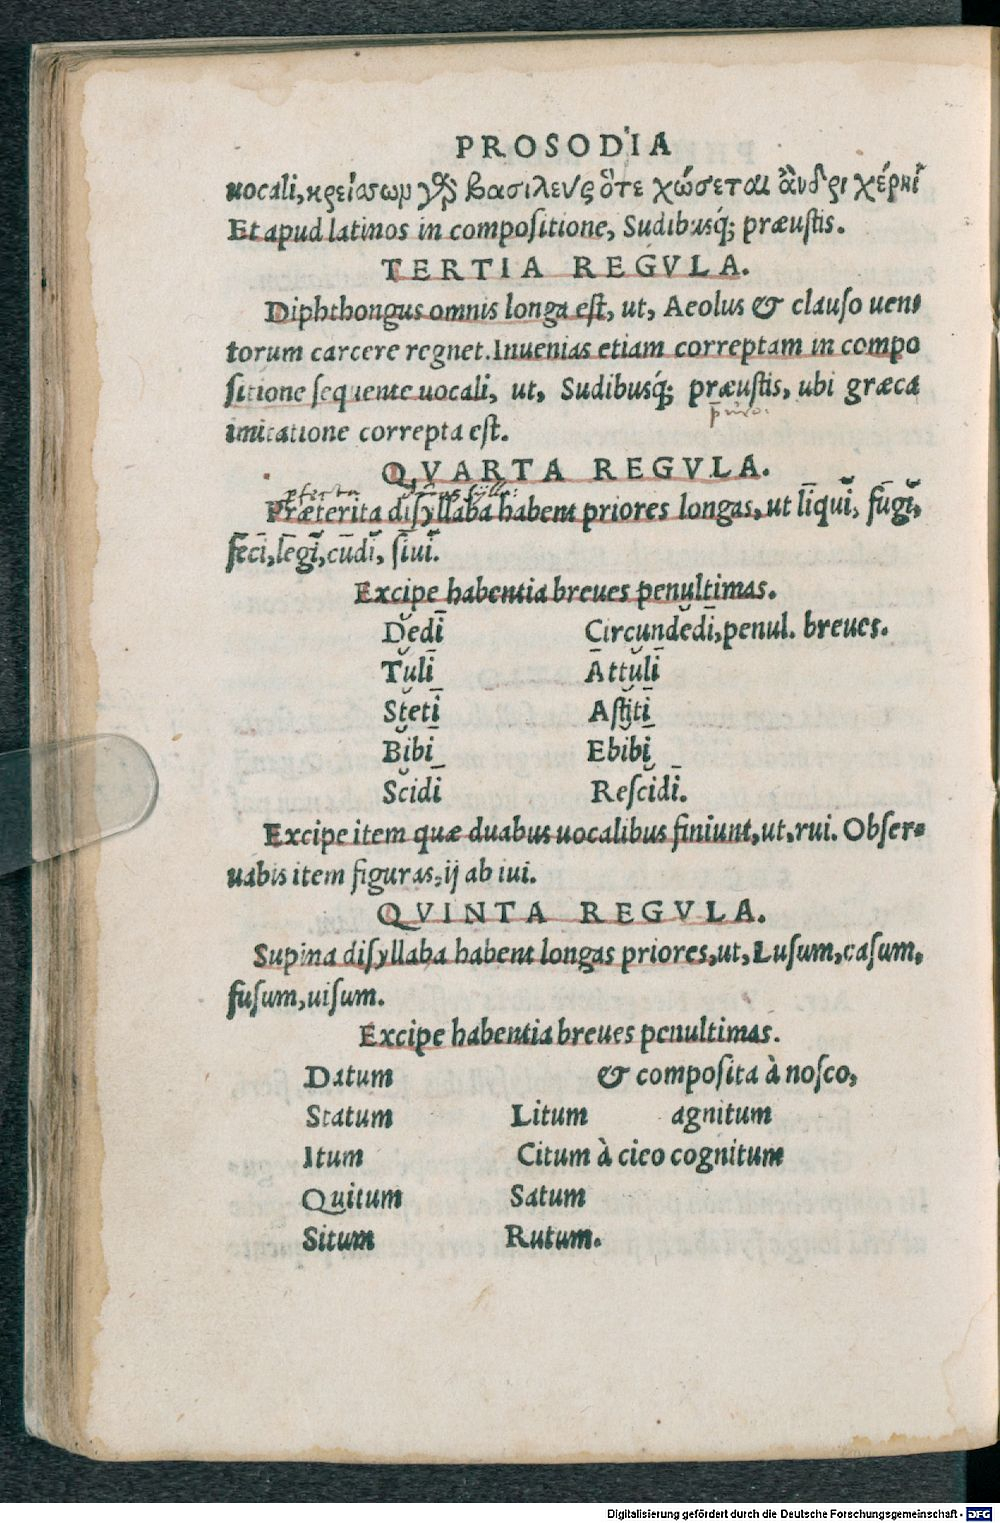 PROSODIA
uocali, κρείσσων γὰρ βασιλευς ὅτε χώσεται ἀνδρι χέρηϊ
Et apud latinos in compositione, Sudibusq́; præustis.
TERTIA REGVLA.
Diphthongus omnis longa est, ut, Aeolus & clauso uen-
torum carcere regnet. Inuenias etiam correptam in compo
sitione sequente uocali, ut, Sudibusq́; præustis, ubi græca
imitatione correpta est.
QVARTA REGVLA.
Præterita disyllaba habent priores longas, ut līquĭ, fūgĭ,
fēcĭ, lēgĭ, cūdĭ, sīuĭ.
Excipe habentia breues penultimas.
Dĕdī Circundĕdī, penul. breues.
Tŭlī Āttŭlī
Stĕtī Astĭtī
Bĭbī Ebĭbī
Scĭdī Rescĭdī.
Excipe item quæ duabus uocalibus finiunt, ut, rui. Obser-
uabis item figuras, ij ab iui.
QVINTA REGVLA.
Supina disyllaba habent longas priores, ut, Lusum, casum,
fusum, uisum.
Excipe habentia breues penultimas.
Datum & composita à nosco,
Statum Litum agnitum
Itum Citum à cieo cognitum
Quitum Satum
Situm Rutum.
Digitalisierung gefördert durch die Deutsche Forschungsgemeinschaft - DFG